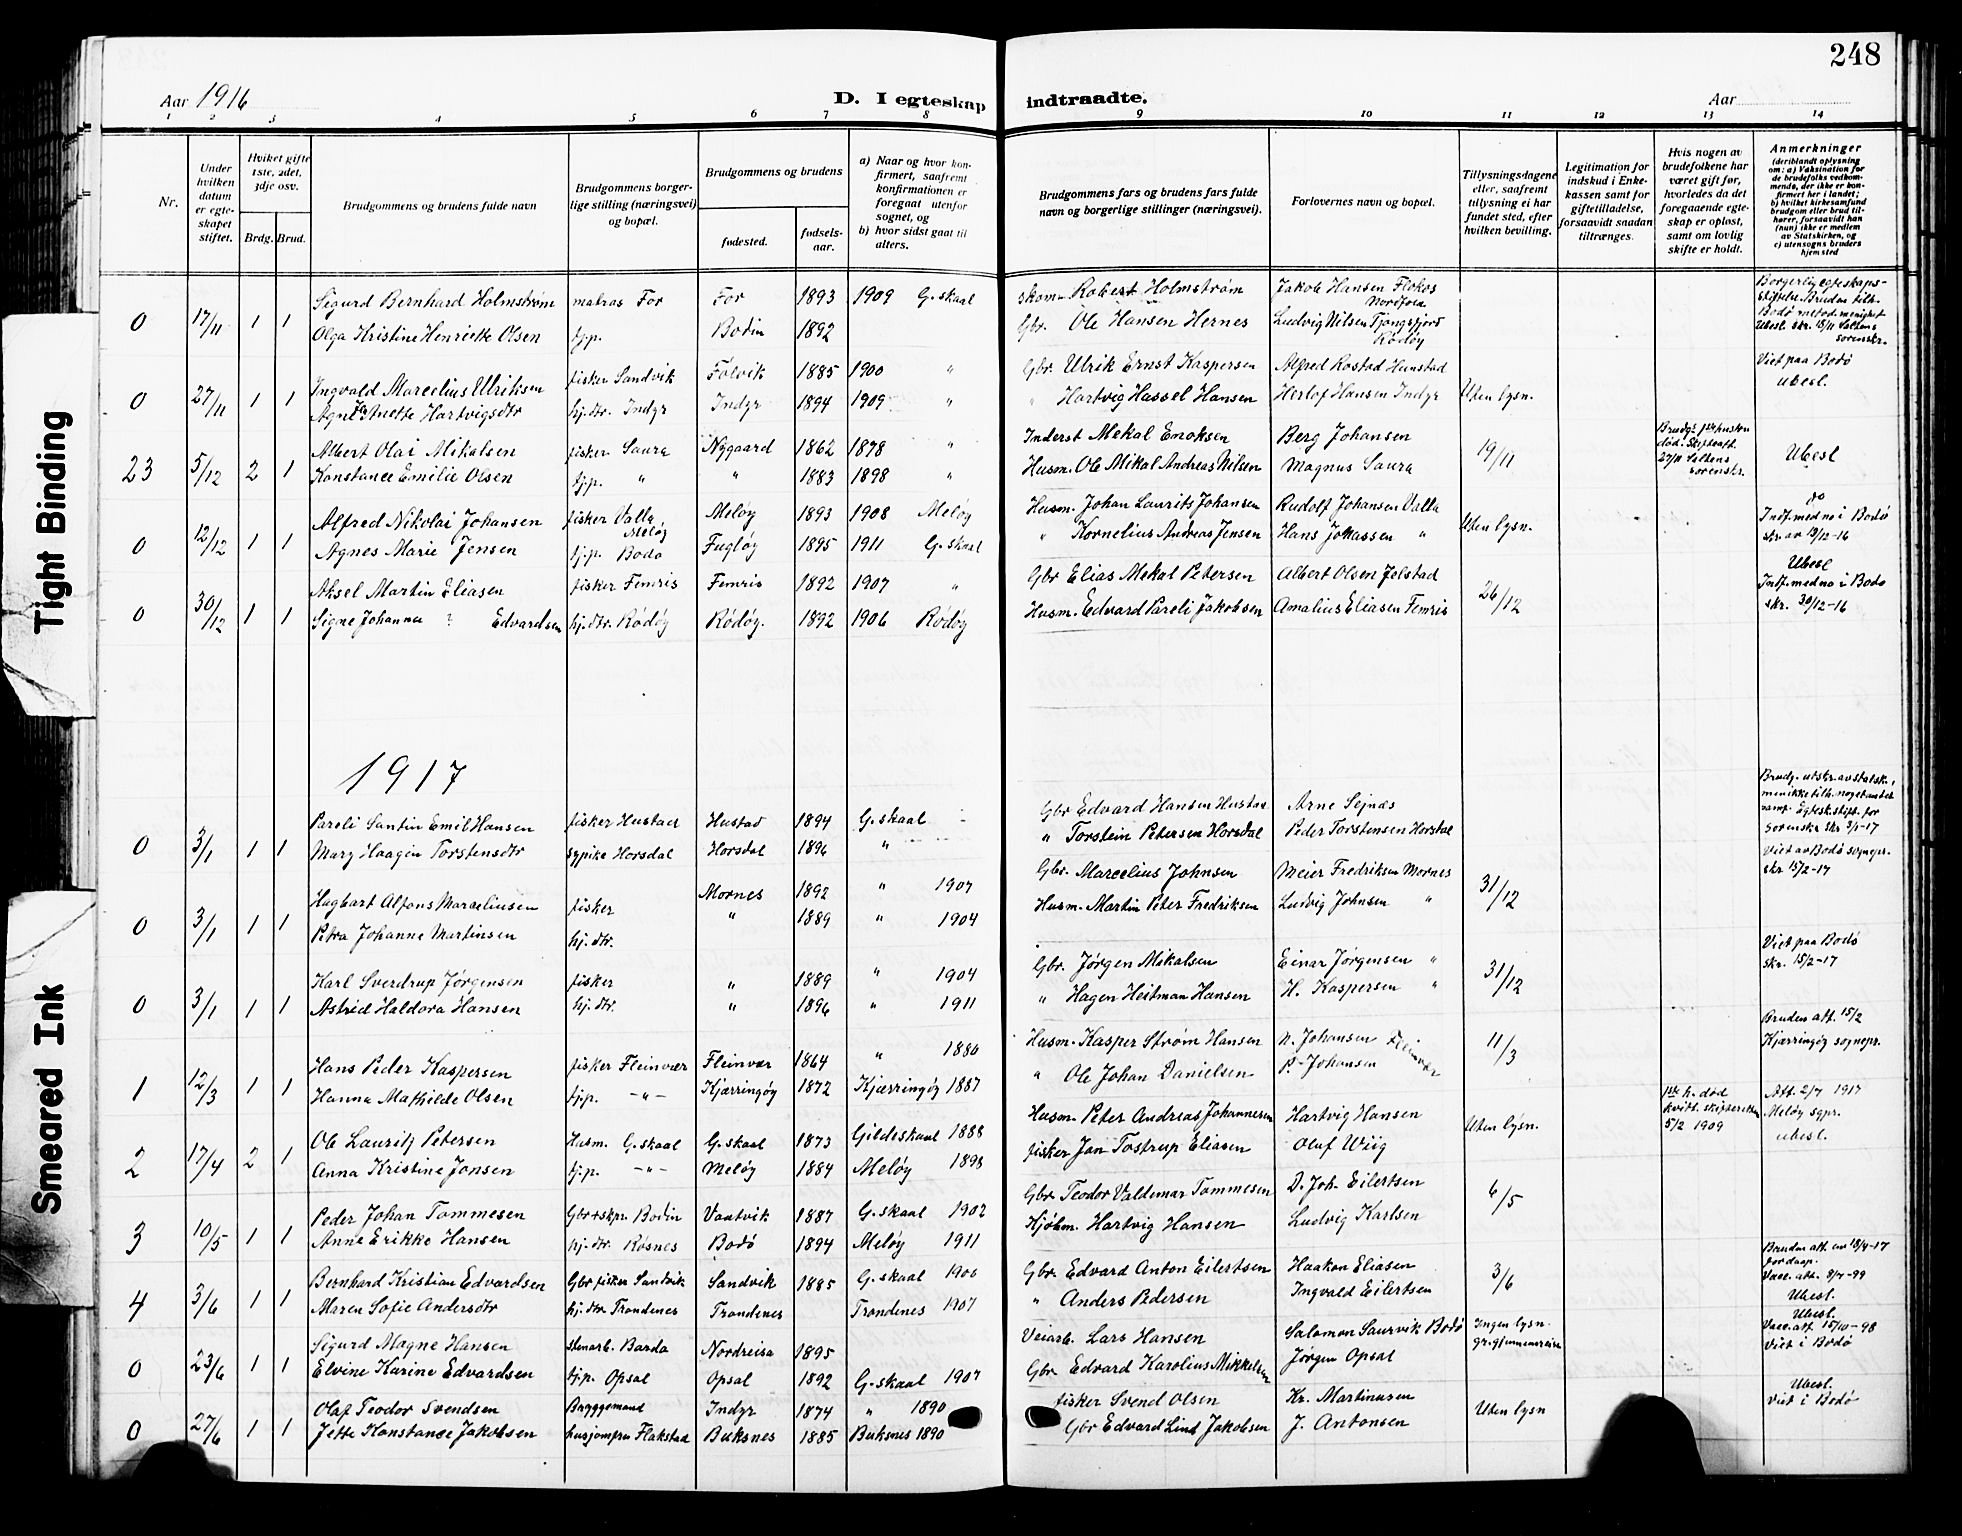 248
Aar 1916
D. I egteskap indtraadte.
Aar
1 2 3 4 5 6 7 8 9 10 11 12 13 14
Nr.
Under hvilken datum er egteskapet stiftet.
Hviket gifte 1ste, 2det, 3dje osv.
Brdg. Brud.
Brudgommens og brudens fulde navn
Brudgommens borgerlige stilling (næringsvei) og bopæl.
Brudgommens og brudens
fødested.
fødselsaar.
a) Naar og hvor konfirmert, saafremt konfirmationen er foregaat utenfor sognet, og
b) hvor sidst gaat til alters.
Brudgommens fars og brudens fars fulde navn og borgerlige stillinger (næringsvei).
Forlovernes navn og bopæl.
Tillysningsdagene eller, saafremt tillysning ei har fundet sted, efter hvilken bevilling.
Legitimation for indskud i Enkekassen samt for giftetilladelse, forsaavidt saadan tiltrænges.
Hvis nogen av brudefolkene har været gift før, hvorledes da det foregaaende egteskap er opløst, samt om lovlig skifte er holdt.
Anmerkninger (deriblandt oplysning om: a) Vaksination for de brudefolks vedkommende, der ikke er konfirmert her i landet; b) hvilket kirkesamfund brudgom eller brud tilhører, forsaavidt han (hun) ikke er medlem av Statskirken, og c) utensogns bruders hjemsted
0 17/11 1 1 Sigurd Bernhard Holmstrøm matros For For 1893 1909 G.skaal skom. Robert Holmstrøm Jakob Hansen Flokos Nordfra Borgerlig egteskapsstiftelse. Bruden tilh. Bodø metod. menighet
Olga Kristine Henriette Olsen tjp. Bodin 1892 Gbr. Ole Hansen Hernes Ludvig Nilsen Tjongsfjord Rødøy Ubesl. skr. 18/11 Saltens sorenskr.
0 27/11 1 1 Ingvald Marcelius Ulriksen fisker Sandvik Følvik 1885 1900 " Gbr. Ulrik Ernst Kaspersen Alfred Rostad Hunstad Uten lysn. Viet paa Bodø
Agnes Anette Hartvigsdtr hj.dtr. Indyr Indyr 1894 1909 " " Hartvig Hassel Hansen Herlof Hansen Indyr ubesl.
23 5/12 2 1 Albert Olai Mikalsen fisker Saura Nygaard 1862 1878 " Inderst Mekal Enoksen Berg Johansen 19/11 Brudg. 1ste hustru død. Skifteatt. 27/11 Saltens sorenskr. Ubesl
Konstance Emilie Olsen tjp. " " 1883 1898 " Husm. Ole Mikal Andreas Nilsen Magnus Saura
0 12/12 1 1 Alfred Nikolai Johansen fisker Valla Meløy Meløy 1893 1908 Meløy Husm. Johan Laurits Johansen Rudolf Johansen Valla Uten lysn. do
Agnes Marie Jensen tj.p. Bodø Fugløy 1895 1911 G.skaal " Kornelius Andreas Jensen Hans Johassen " Indf. med no i Bodø skr av 13/12-16
0 30/12 1 1 Aksel Martin Eliasen fisker Femris Femris 1892 1907 " Gbr Elias Mekal Petersen Albert Olsen Jelstad 26/12 Ubesl
Signe Johanna ? Edvardsen hj.dtr. Rødøy Rødøy. 1892 1906 Rødøy Husm. Edvard Pareli Jakobsen Amalius Eliasen Femris Indf. med no i Bodø skr. 30/12-16
1917
0 3/1 1 1 Pareli Santin Emil Hansen fisker Hustad Hustad 1894 G.skaal Gbr Edvard Hansen Hustad Arne Sejnæs Brudg. utskr. av statsk.,
Mary Haagin Torstensdtr sypike Horsdal Horsdal 1896 " " Torstein Petersen Horsdal Peder Torstensen Horsdal sorenskr skr 3/1-17
Viet av Bodø sognepr. skr 15/2-17
0 3/1 1 1 Hagbart Alfons Marceliusen fisker Mornes 1892 " 1907 Gbr. Marcelius Johnsen Meier Fredriksen Mornes 31/12
Petra Johanne Martinsen hj.dtr. " 1889 " 1904 Husm. Martin Peter Fredriksen Ludvig Johnsen "
0 3/1 1 1 Karl Sverdrup Jørgensen fisker " 1889 " 1904 Gbr. Jørgen Mikalsen Einar Jørgensen " 31/12 Viet paa Bodø skr. 15/2-17
Astrid Haldora Hansen hj.dtr. " 1896 " 1911 " Hagen Heitman Hansen H. Kaspersen "
1 12/3 1 1 Hans Peder Kaspersen fisker Fleinvær Fleinvær 1864 " 1880 Husm. Kasper Strøm Hansen N. Johansen Fleinvær 11/3 Bruden att. 15/2 Kjærringøy sognepr.
Hanna Mathilde Olsen tj.p. -"- Kjærringøy 1872 Kjærringøy 1887 " Ole Johan Danielsen P. Johansen
2 17/4 2 1 Ole Lauritz Petersen Husm. G.skaal G.skaal 1873 Gildeskaal 1888 Husm. Peter Andreas Johannesen Hartvig Hansen Uten lysn. 1ste h. død kvitt. skifteretten 5/2 1909 Att. 2/4 1917 Meløy sgpr. ubesl.
Anna Kristine Jansen tj.p. -"- Meløy 1884 Meløy 1898 fisker Jan Tostrup Eliasen Oluf Wiig
3 10/5 1 1 Peder Johan Tommesen Gbr+skpr. Bodin Vaatvik 1887 G.skaal 1902 Gbr. Teodor Valdemar Tommesen D. Joh. Eilertsen 6/5
Anne Erikke Hansen hj.dtr. Røsnes Bodø 1894 Meløy 1911 Kjøbm. Hartvig Hansen Ludvig Karlsen
4 3/6 1 1 Bernhard Kristian Edvardsen Gbr fisker Sandvik Sandvik 1885 G.skaal 1900 Gbr. Edvard Anton Eilertsen Haakon Eliasen 3/6 Bruden att. om 18/4-17 for daap. Vacc. att. 9/7-99 Ubesl.
Maren Sofie Andersdtr hj.dtr Trondenes Trondenes Trondenes 1907 " Anders Pedersen Ingvald Eilertsen
0 23/6 1 1 Sigurd Magne Hansen stenarb. Bardo Nordreisa 1895 Veiarb. Lars Hansen Salomon Saursvik Bodø Ingen lysn. Ubesl. Vacc. att. 15/10-98 Viet i Bodø
Elvine Karine Edvardsen tj.p. Opsal Opsal 1892 G.skaal 1907 Gbr. Edvard Karolius Mikkelsen Jørgen Opsal
0 27/6 1 1 Olaf Teodor Svendsen Bryggemand Indyr 1874 " 1890 fisker Svend Olsen Kr. Martinusen Uten lysn Ubesl. Viet i Bodø
Jette Konstance Jakobsen husjomfru Flakstad Buksnes 1885 Buksnes 1890 Gbr Edvard Lind Jakobsen J. Antonsen
Tight Binding
Smeared Ink